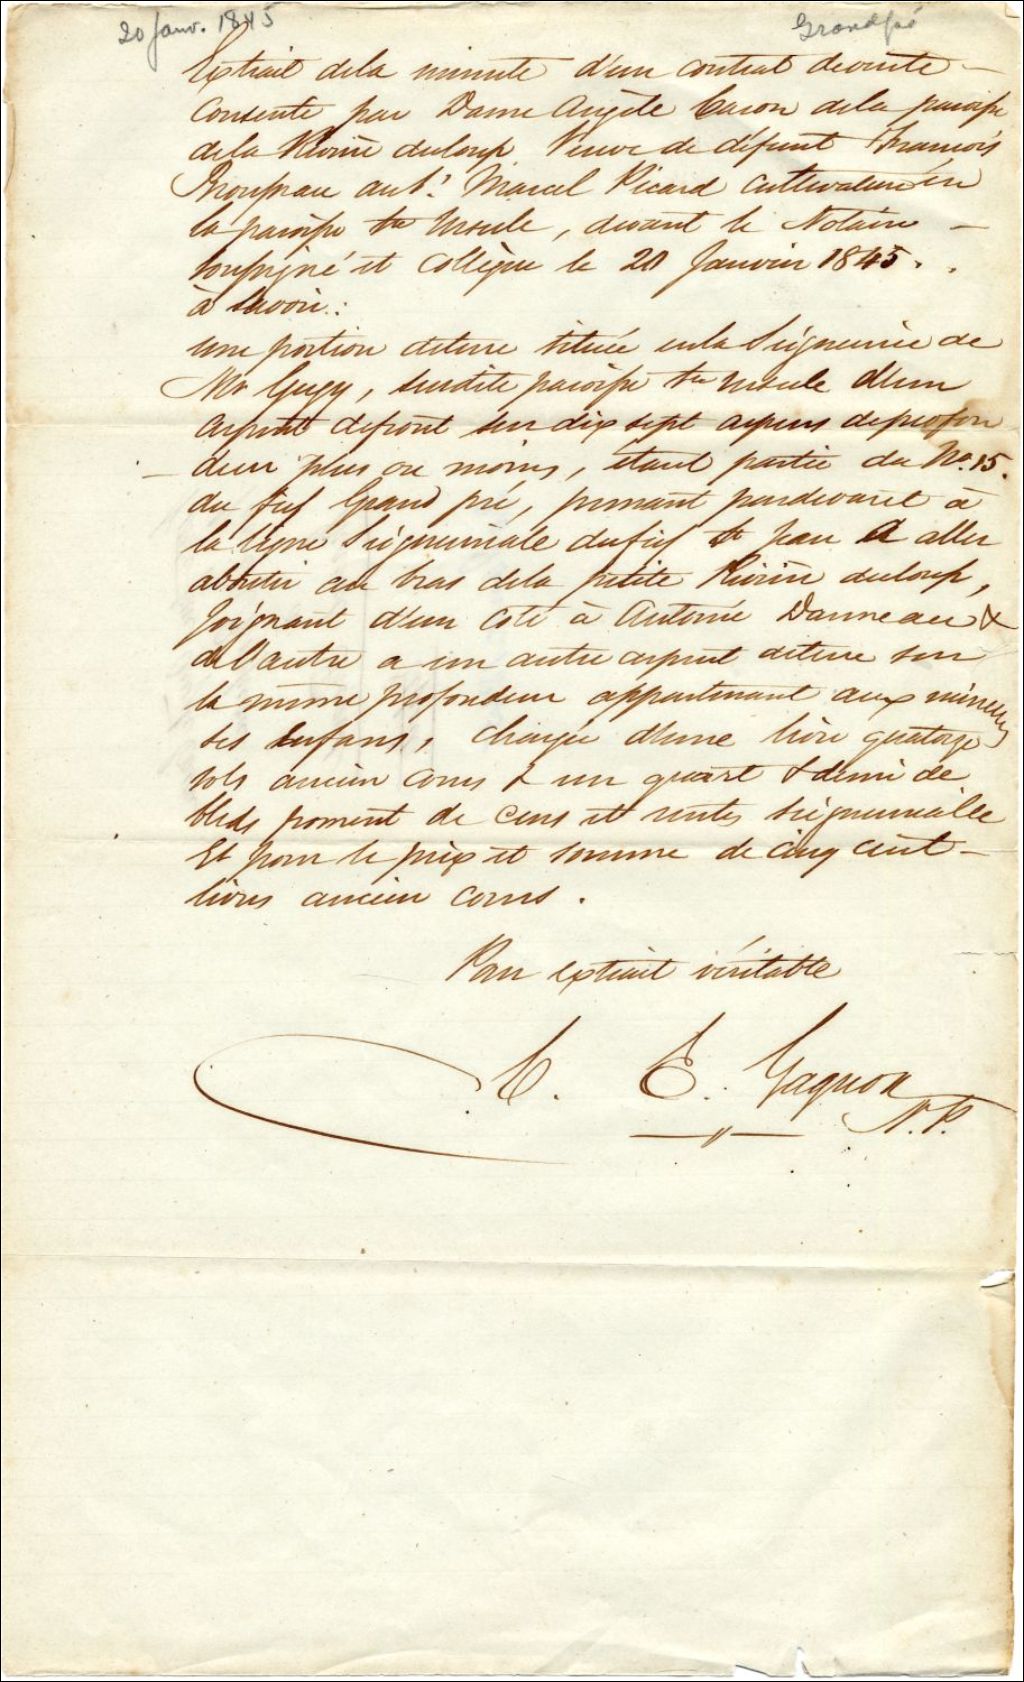 20 Janv. 1845
Grandpré
Extrait dela minute d'un contrat de vente –
Consentie par Dame Angèle Caron dela paroisse
dela Rivière duloup Veuve de défunt François
au Sr. Marcel Picard cultivateur en
la paroisse Ste Ursule, devant le Notaire –
soussigné et Collègue le 20 Janvier 1845.
à savoir :
une portion deterre située enla Seigneurie de
Mr Gugy, susdite paroisse Ste Ursule d'un
arpent defront sur dix sept arpens deprofon
deur plus ou moins, étant partie du No. 15.
du fief Grand pré, prenant pardevant à
la ligne Seigneuriale dufief St Jean A aller
aboutir au bras dela petite Rivière duloup,
Joignant d'un coté à Antoine Danneau &
del'autre a un autre arpent deterre sur
la même profondeur appartenant aux mineurs
ses Enfans, chargée d'une livre quatorze
sols ancien cours & un quart & demi de
bleds froment de Cens et rentes seigneuriale
Et pour le prix et somme de cinq cent –
livres ancien cours.
Pour extrait véritable
E. Gagnon
N.P.